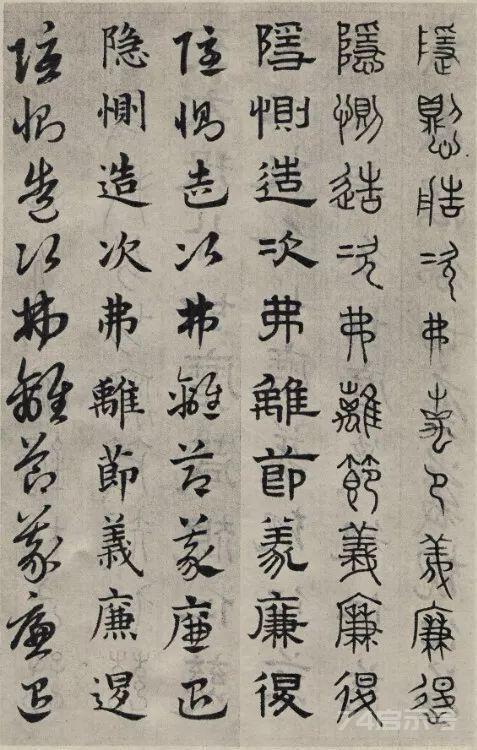 隱惻造次弗離節義廉退
隱惻造次弗離節義廉退
隱惻造次弗離節義廉退
隱惻造次弗離節義廉退
隐惻造次弗離節義廉退
隱惻造次弗離節義廉退
启示号